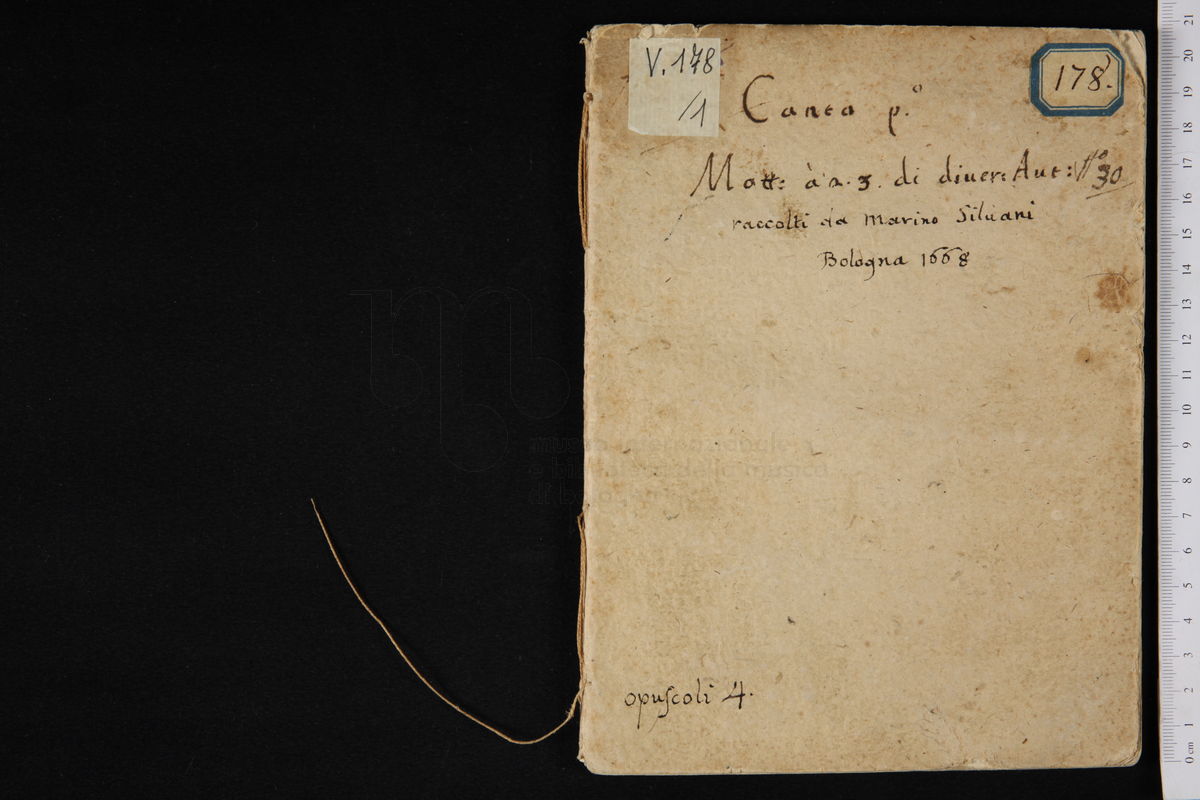 V. 178
/1
178.
Canto p.º
Mott: à 2. 3. di diuer: Aut: Nº 30
raccolti da Marino Siluani
Bologna 1668
opuſcoli 4.
museo internazionale
e biblioteca della musica
di bologna
0 cm 1 2 3 4 5 6 7 8 9 10 11 12 13 14 15 16 17 18 19 20 21